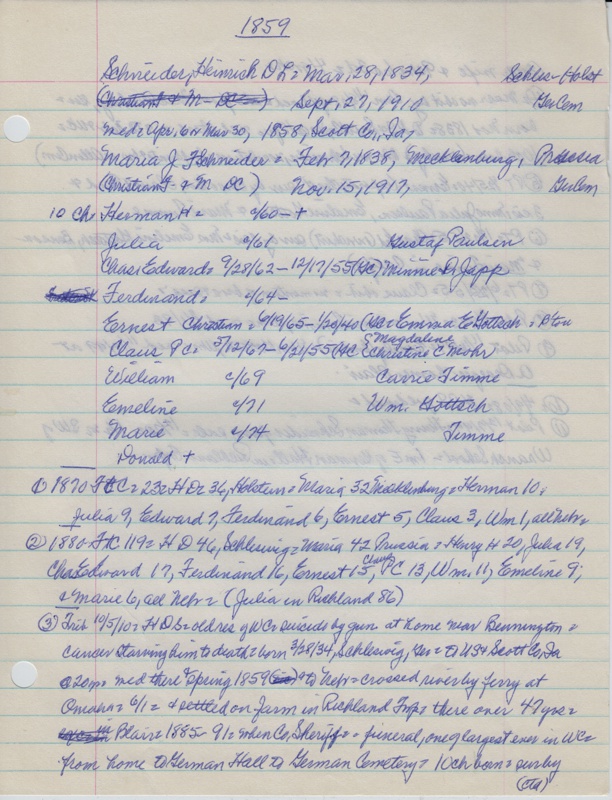 1859
Schneider, Heinrich D L = Mar, 28, 1834, Schles-Holst
(Christian F & M - DC) Sept, 27, 1910 GerCem
md = Apr, 6 or Mar 30, 1858, Scott Co, Ia,
Maria J F Schneider = Feb 7, 1838, Mecklenburg, Prussia
(Christian F & M DC) Nov. 15, 1917, GerCem
10 Ch = Herman H = c/60 - +
Julia c/61 Gustaf Paulsen
Chas, Edward = 9/28/62 - 12/17/55 (DC) Minnie D, Japp
Ferdinand = c/64 -
Ernest Christian = 6/19/65 - 1/20/40 (DC = Emma E Gottsch =
Claus P C = 5/12/67 - 6/21/55 (DC) Magdalene Christine C Mohr
William c/69 Carrie Timme
Emeline c/71 Wm. Gottsch
Marie c/74 Timme
Donald +
① 1870 FtC = 23 = H D = 36, Holstein = Maria 32 Mecklenburg = Herman 10,
Julia 9, Edward 7, Ferdinand 6, Ernest 5, Claus 3, Wm 1, all Nebr =
② 1880 FtC 119 = H D 46, Schleswig = Maria 42 Prussia = Henry H 20, Julia 19,
Chas Edward 17, Ferdinand 16, Ernest 15, Claus PC 13, Wm, 11, Emeline 9;
& Marie 6, all Nebr = (Julia in Richland 86)
③ Trib 10/5/10 = H D S = oldres of WC = suicide by gun at home near Bennington =
cancer starving him to death = born 3/28/34, Schleswig, Ger = to USA Scott Co, Ia
@ 20 = md there & Spring 1859 to Nebr = crossed river by ferry at
Omaha = 6/1 = & settled on farm in Richland Twp = there over 47 yrs =
Blair = 1885 - 91 = when Co, Sheriff = = funeral, one of largest ever in WC =
from home to German Hall to German Cemetery = 10 ch born = survby
(ctd)